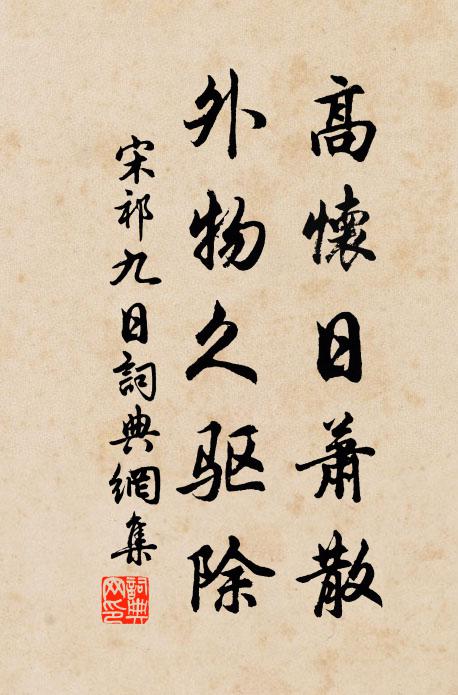 高懷日蕭散
外物久驱除
宋祁九日詞典網集
詞典網印